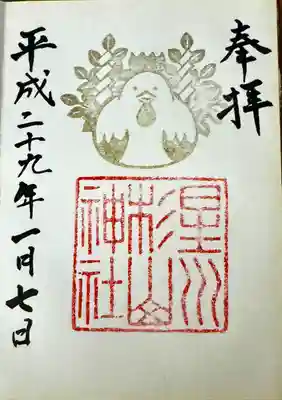 奉拝
星川
杉山
神社
平成二十九年一月七日